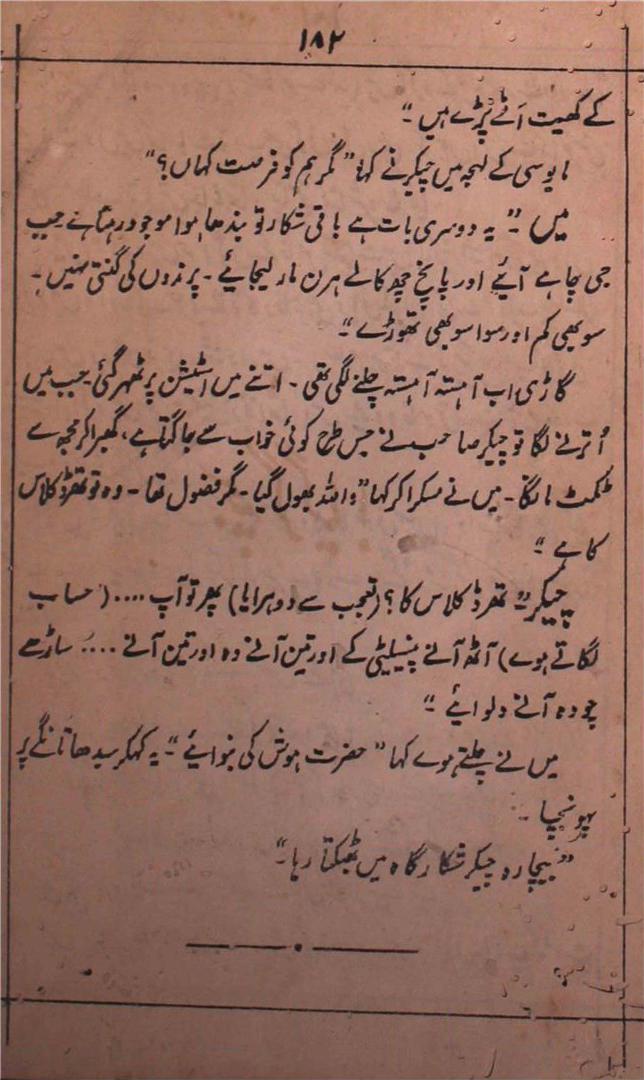 ۱۸۲
کے کھیت اَٹے پڑے ہیں "
مایوسی کے لہجہ میں چیکر نے کہا " مگر ہم کو فرصت کہاں ؟ "
میں " یہ دوسری بات ہے باقی شکار تو بندھا ہوا موجود رہتا ہے جب
جی چاہے آیئے اور پانچ چھ کالے ہرن مار لیجایئے ۔ پرندوں کی گنتی نہیں ۔
سو بھی کم اور سوا سو بھی تھوڑے "
گاڑی اب آہستہ آہستہ چلنے لگی تھی ۔ اتنے میں اسٹیشن پر ٹھہر گئی جب میں
اُترنے لگا تو چیکر صاحب نے جس طرح کوئی خواب سے جاگتا ہے ، گھبرا کر مجھ سے
ٹکٹ مانگا ۔ میں نے مسکرا کر کہا " واللہ بھول گیا ۔ مگر فضول تھا ۔ وہ تو تھرڈ کلاس
کا ہے "
چیکر " تھرڈ کلاس کا ؟ ( تعجب سے دوہرایا ) پھر تو آپ .... ( حساب
لگاتے ہوے ) آٹھ آنے پنیلیٹی کے اور تین آنے وہ اور تین آنے .... ساڑھے
چودہ آنے دلوایئے "
میں نے چلتے ہوے کہا " حضرت ہوش کی بنوایئے " ۔ یہ کہکر سیدھا تانگے پر
پہونچا ۔
" بیچارہ چیکر شکارگاہ میں بھٹکتا رہا "